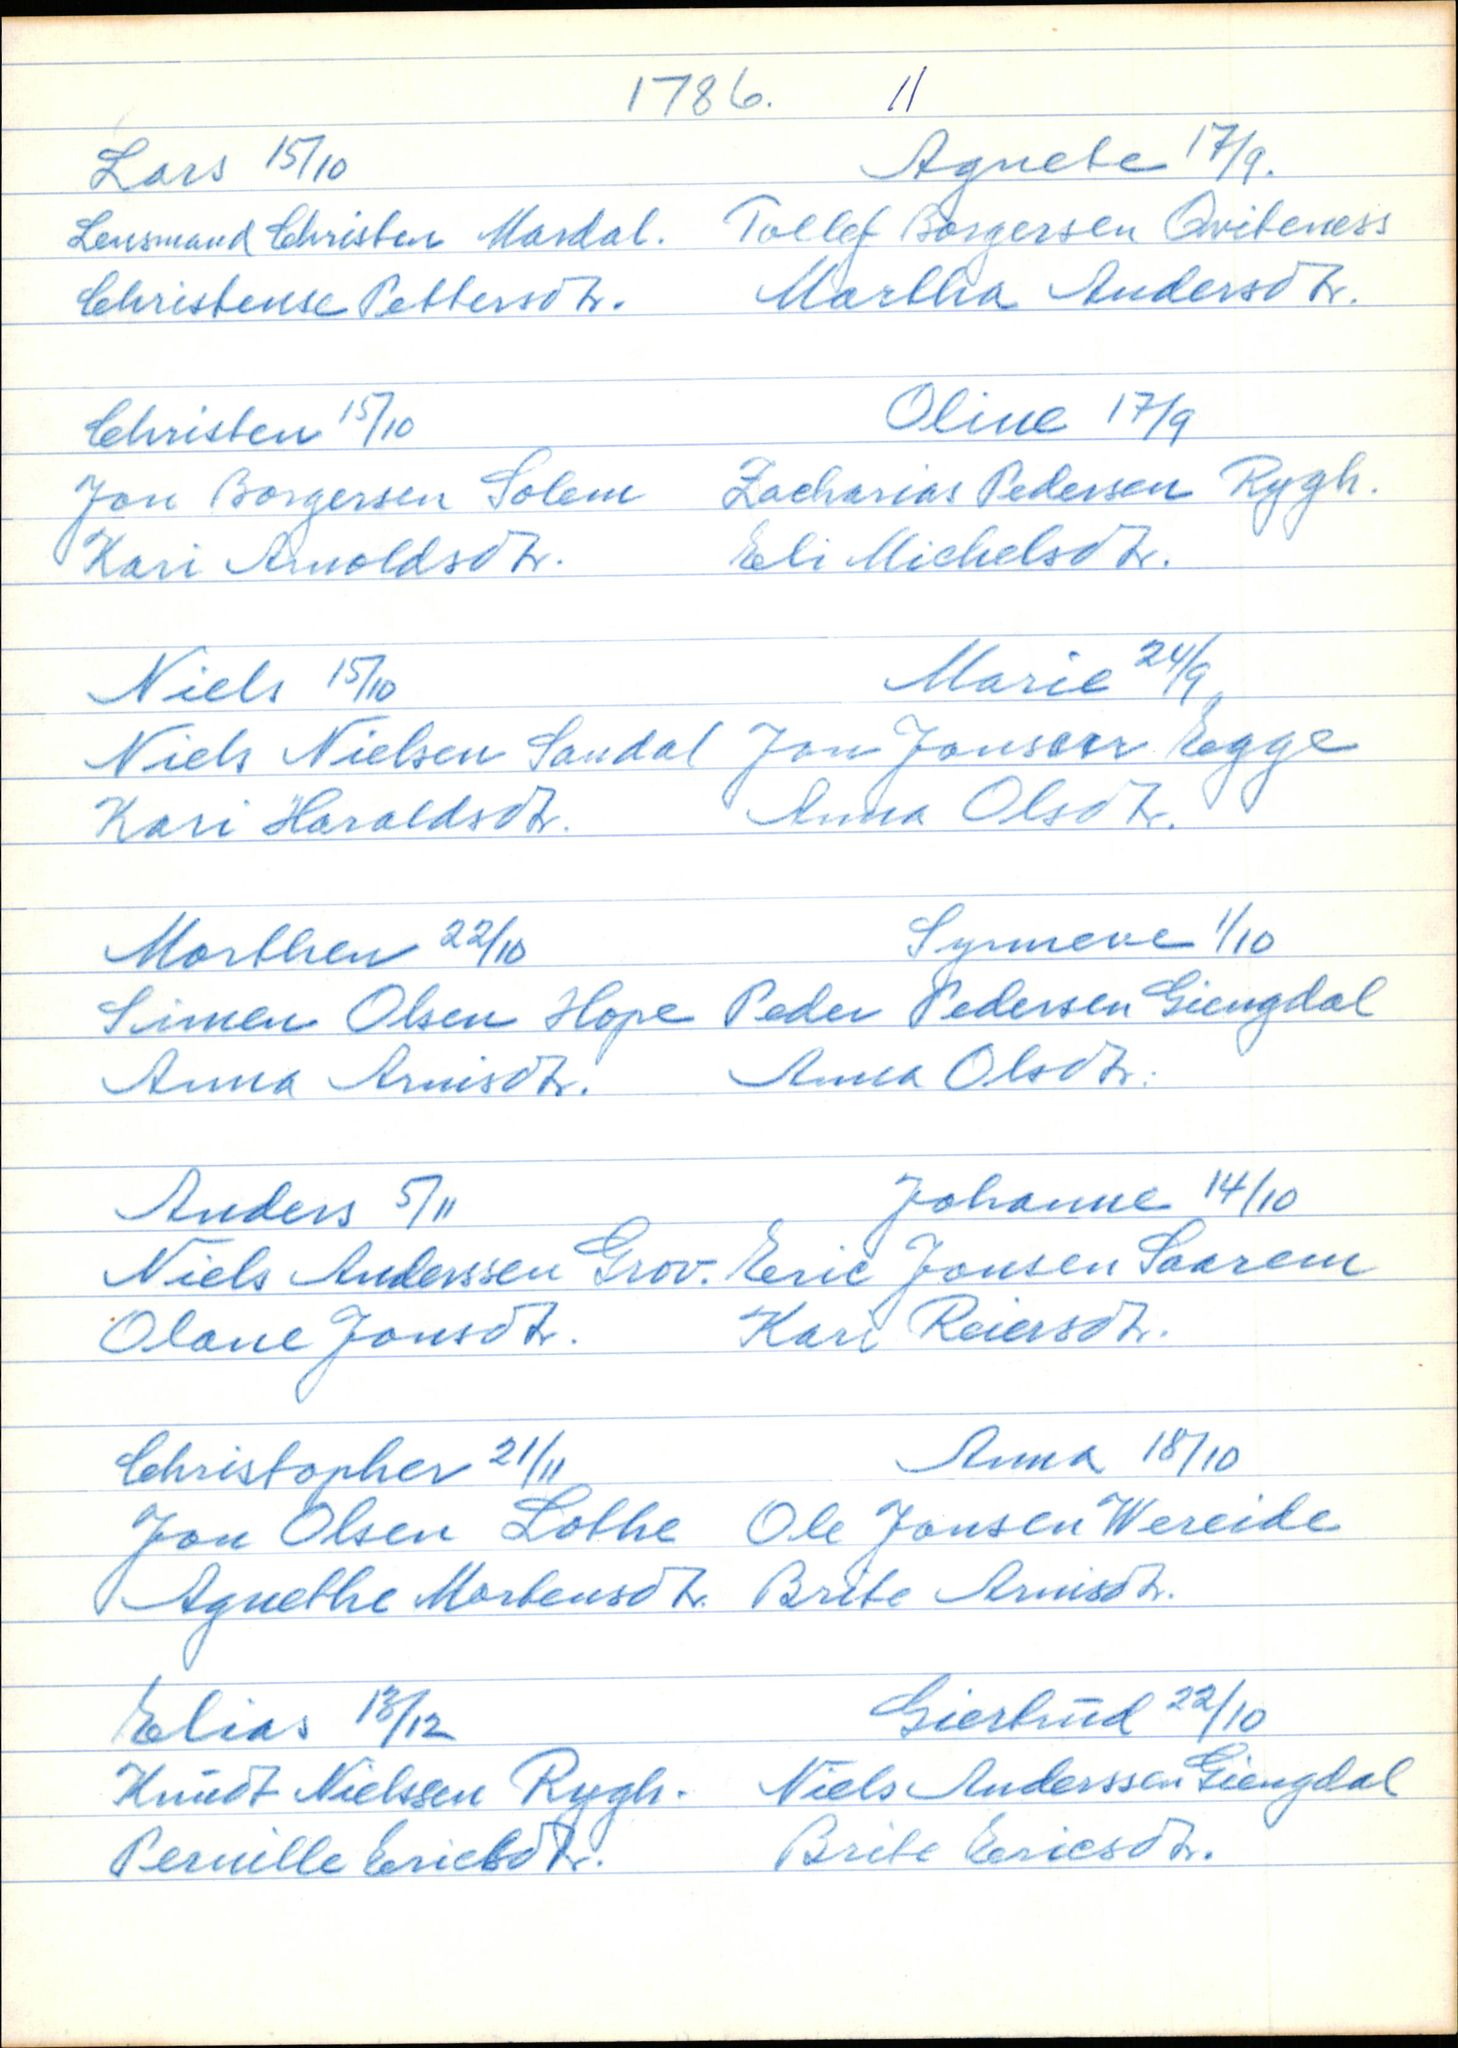 1786. 11
Lars 15/10
Lensmand Christen Mardal.
Christense Pettersdtr.
Agnete 17/9.
Tollef Borgersen Qviteness
Martha Andersdtr.
Christen 15/10
Jon Borgersen Solem
Kari Arnoldsdtr.
Oline 17/9
Zacharias Pedersen Rygh.
Eli Michelsdtr.
Niels 15/10
Niels Nielsen Sandal
Kari Haraldsdtr.
Marie 24/9
Jon Jonsen Egge
Anna Olsdtr.
Morthen 22/10
Simen Olsen Hope
Anna Arnisdtr.
Synneve 1/10
Peder Pedersen Giengdal
Anna Olsdtr.
Anders 5/11
Niels Anderssen Grov.
Olane Jonsdtr.
Johanne 14/10
Eric Jonsen Saarem
Kari Reiersdtr.
Christopher 21/11
Jon Olsen Lothe
Agnethe Mortensdtr.
Anna 18/10
Ole Jonsen Wereide
Brite Arnisdtr.
Elias 13/12
Knudt Nielssen Rygh.
Pernille Ericsdtr.
Giertrud 22/10
Niels Anderssen Giengdal
Brite Ericsdtr.